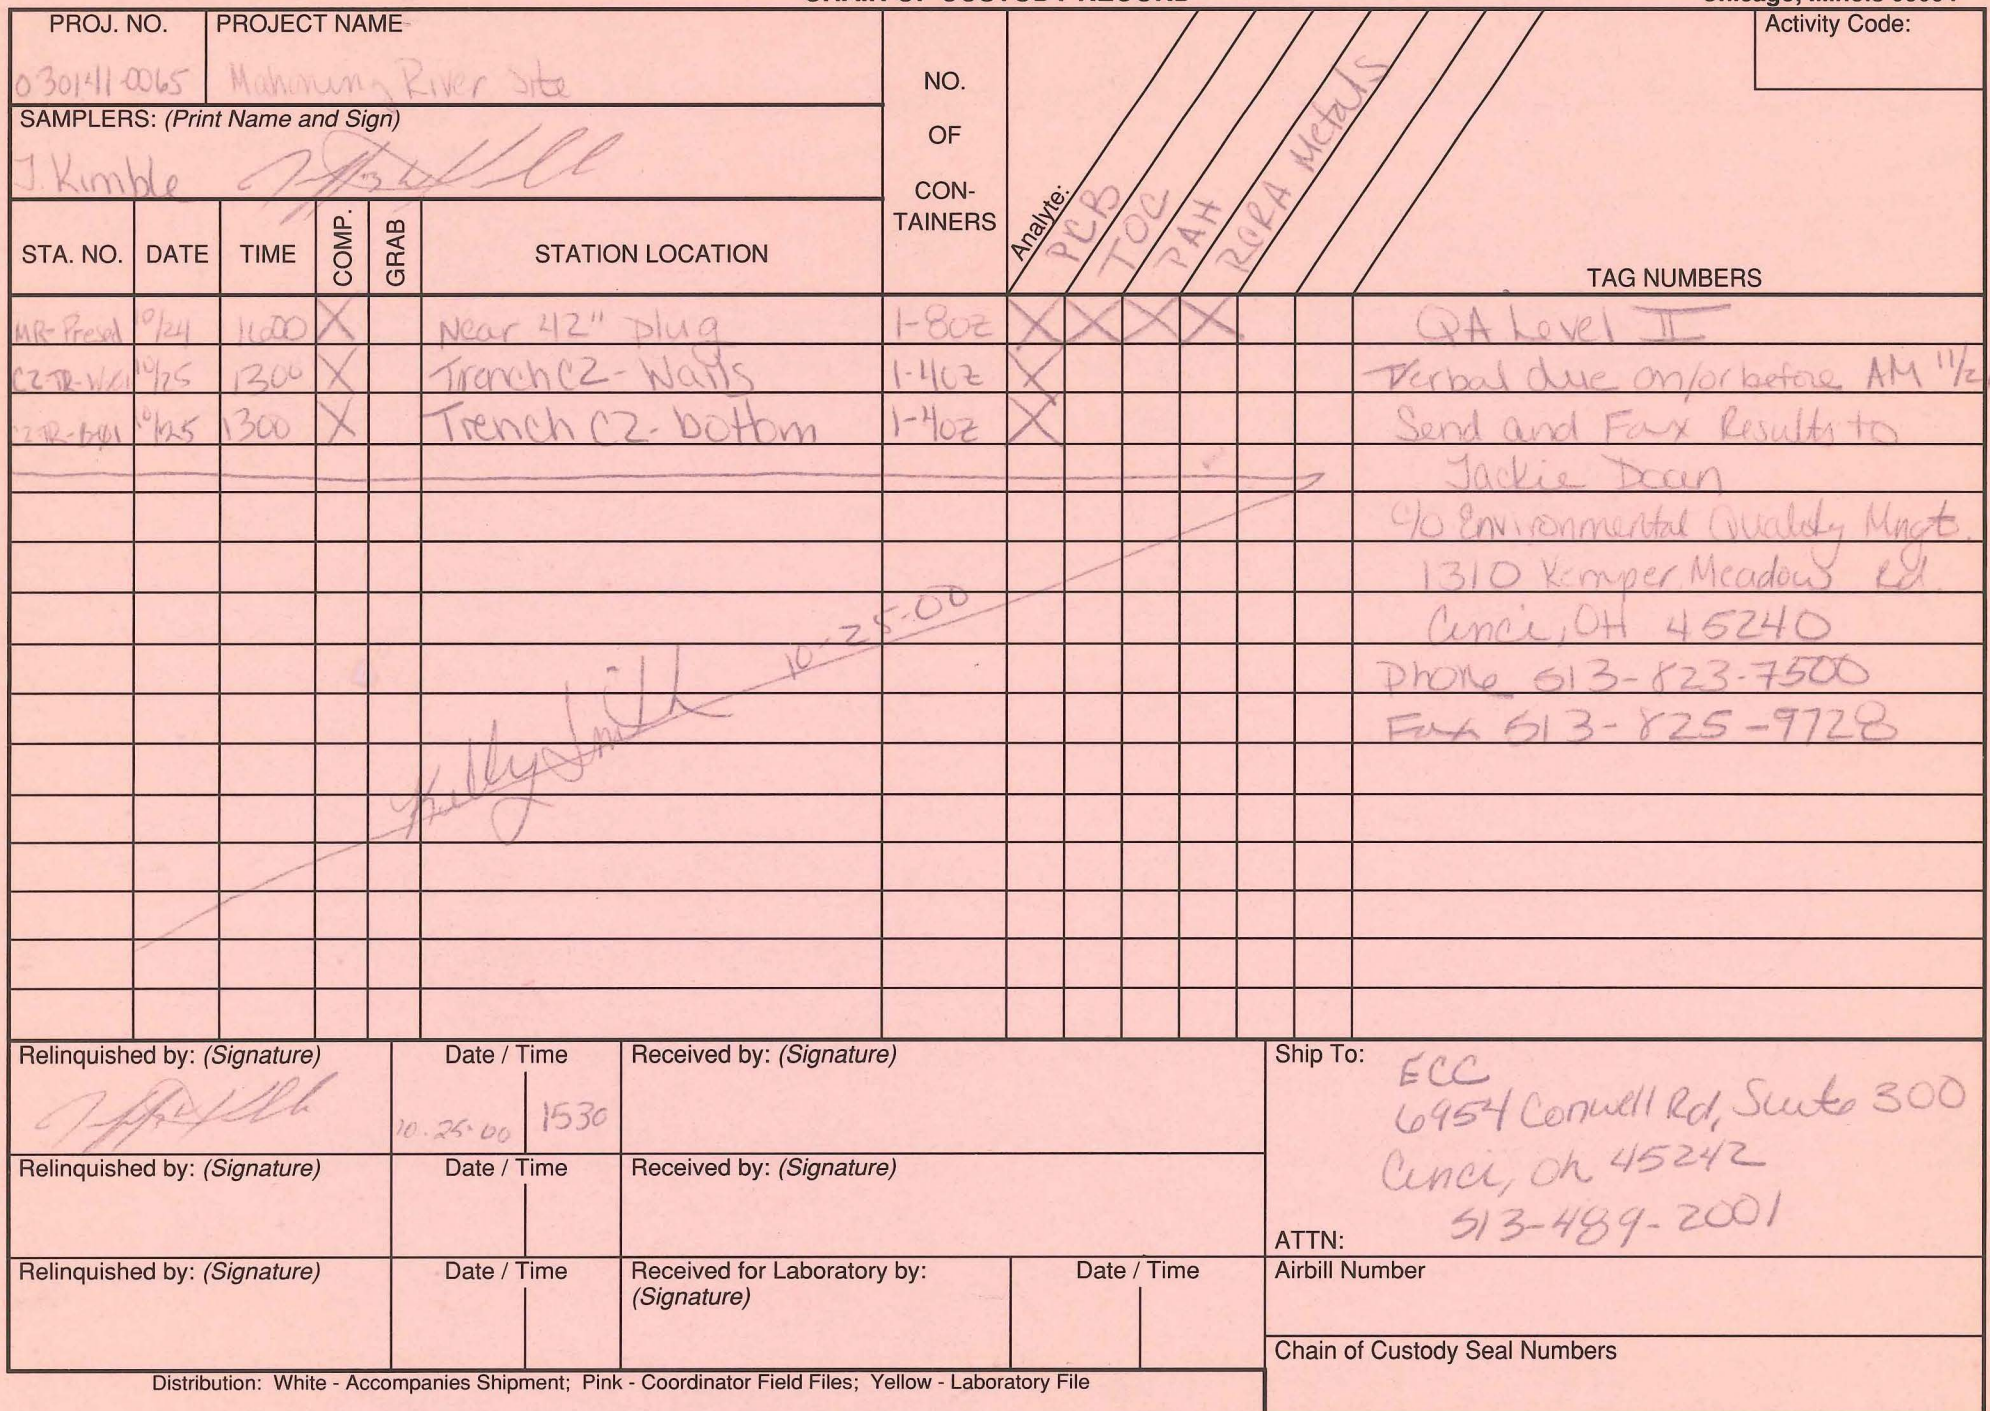 PROJ. NO. PROJECT NAME Activity Code:
Mahoning River Site
NO.
OF
CON-
TAINERS
SAMPLERS: (Print Name and Sign)
J. Kimble
Analyte: PCB TOC PAH RCRA Metals
STA. NO. DATE TIME COMP. GRAB STATION LOCATION TAG NUMBERS
10/24 X Near 42" plug 1-8oz X X X X QA Level II
10/25 1300 X Trench C2 - Walls 1-4oz X Verbal due on/or before AM
10/25 1300 X Trench C2 - bottom 1-4oz X Send and Fax Results to
Jackie Doan
c/o Environmental Quality Mngt.
1310 Kemper Meadow Rd
Cinci, OH 45240
Phone 513-823-7500
Fax 513-825-9728
Kelly Smith 10-25-00
Relinquished by: (Signature) Date / Time Received by: (Signature) Ship To:
10-25-00 1530
ECC
6954 Cornwell Rd, Suite 300
Cinci, Oh 45242
513-489-2001
Relinquished by: (Signature) Date / Time Received by: (Signature)
ATTN:
Relinquished by: (Signature) Date / Time Received for Laboratory by: (Signature) Date / Time Airbill Number
Chain of Custody Seal Numbers
Distribution: White - Accompanies Shipment; Pink - Coordinator Field Files; Yellow - Laboratory File